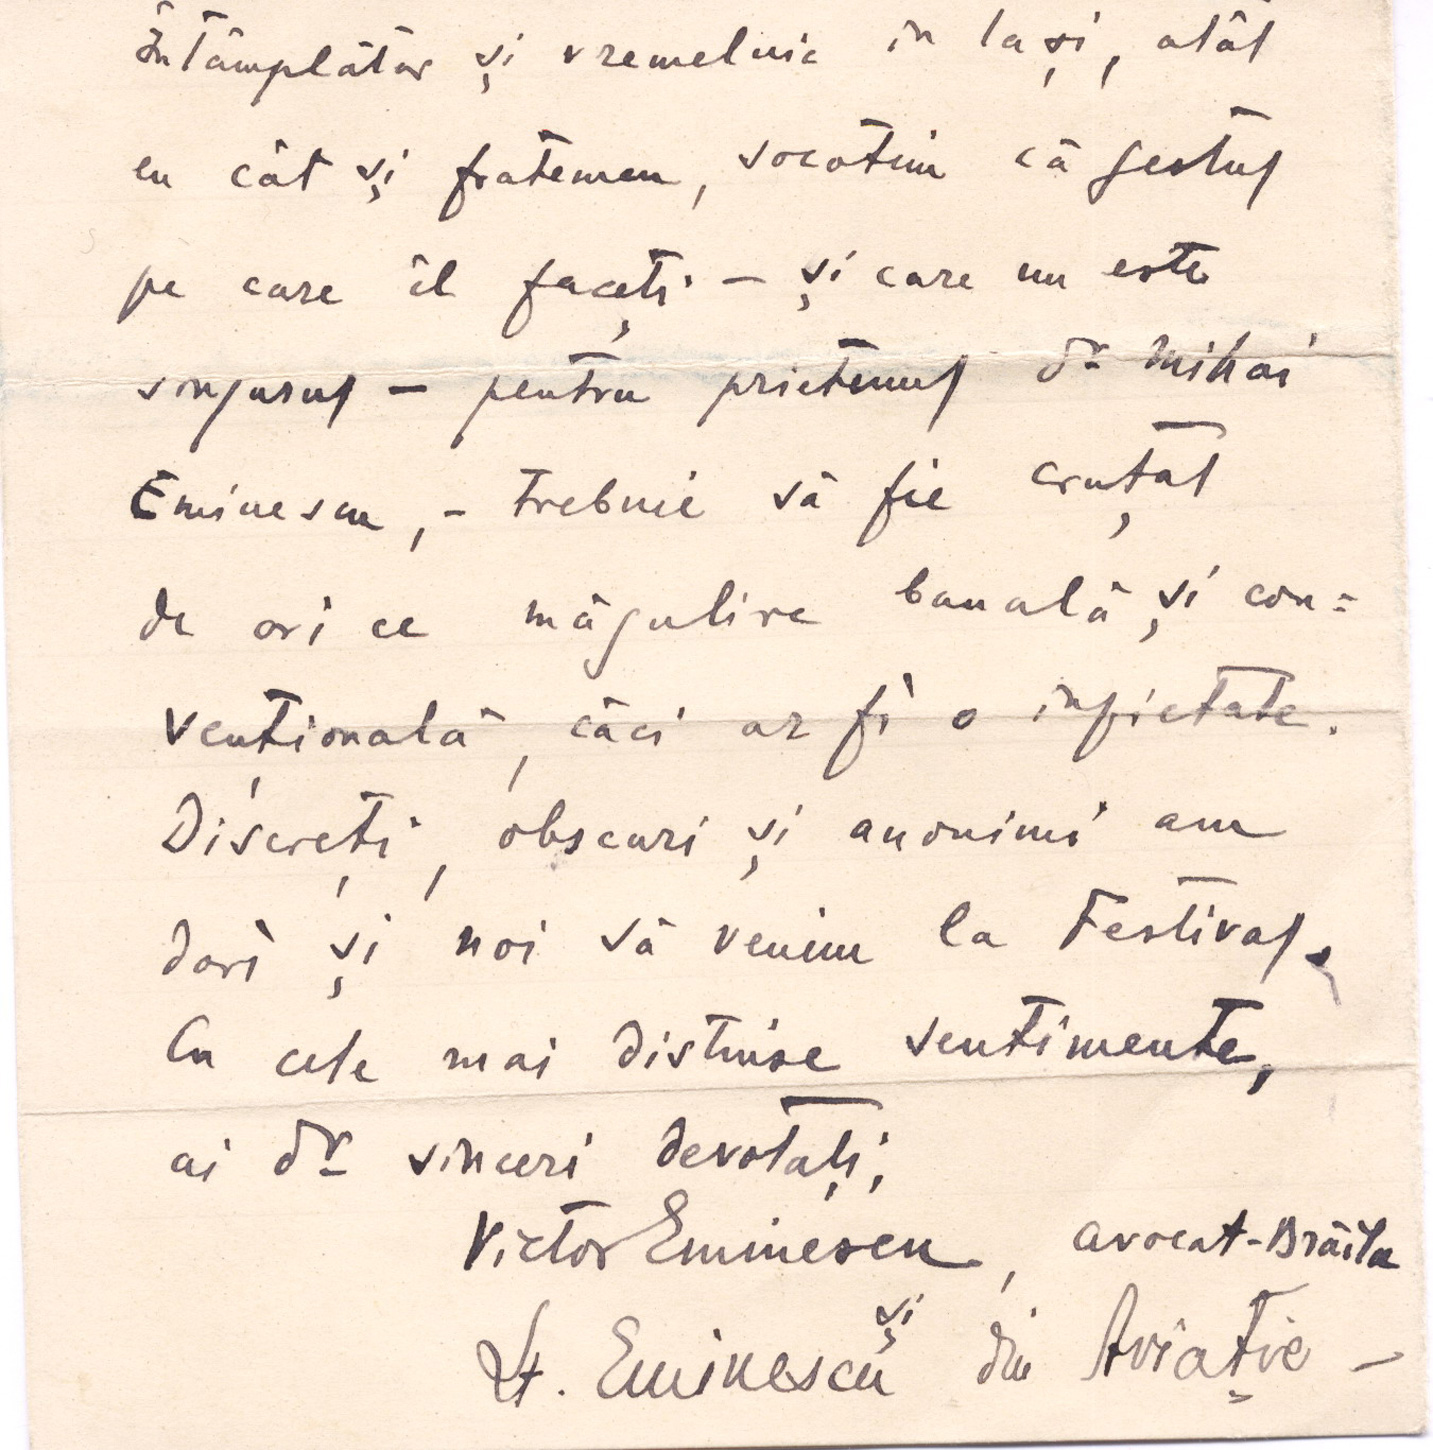 Întâmplător și vremelnic in Iași, atât
eu cât și fratemeu, socotim că gestul
pe care îl faceți – și care nu este
singurul – pentru prietenul dr Mihai
Eminescu, – trebuie să fie cruțat
de ori ce măgulire banală și con=
vențională, căci ar fi o inpietate.
Discreți, obscuri și anonimi am
dori și noi să venim la Festival.
Cu cele mai distinse sentimente,
ai dv sinceri devotați,
Victor Eminescu, avocat-Brăila
și
Lt. Eminescu din Aviație –